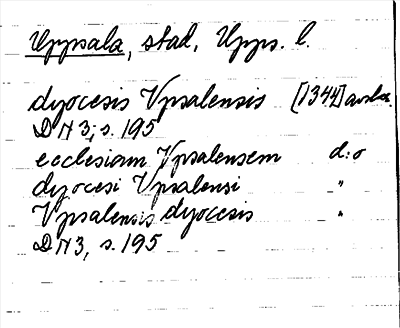 Uppsala, stad, Upps. l.
dyocesis Vpsalensis [1344] avskr.
DN 3, s. 195
ecclesiam Vpsalensem d:o
dyocesi Vpsalensi _"_
Vpsalensis dyocesis _"_
DN 3, s. 195